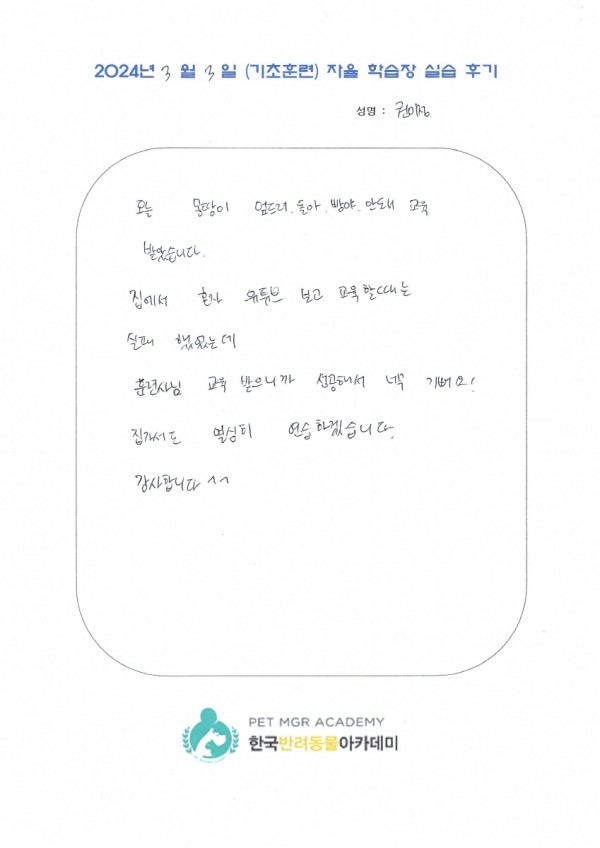 2024년 3 월 3 일 (기초훈련) 자율 학습장 실습 후기
성명 : 권미정
오늘 몽땅이 엎드려. 돌아. 빵야. 안돼 교육
받았습니다.
집에서 혼자 유튜브 보고 교육할때는
실패 했었는데
훈련사님 교육 받으니까 성공해서 너무 기뻐요!
집가서도 열심히 연습하겠습니다.
감사합니다 ^^
PET MGR ACADEMY
한국반려동물아카데미